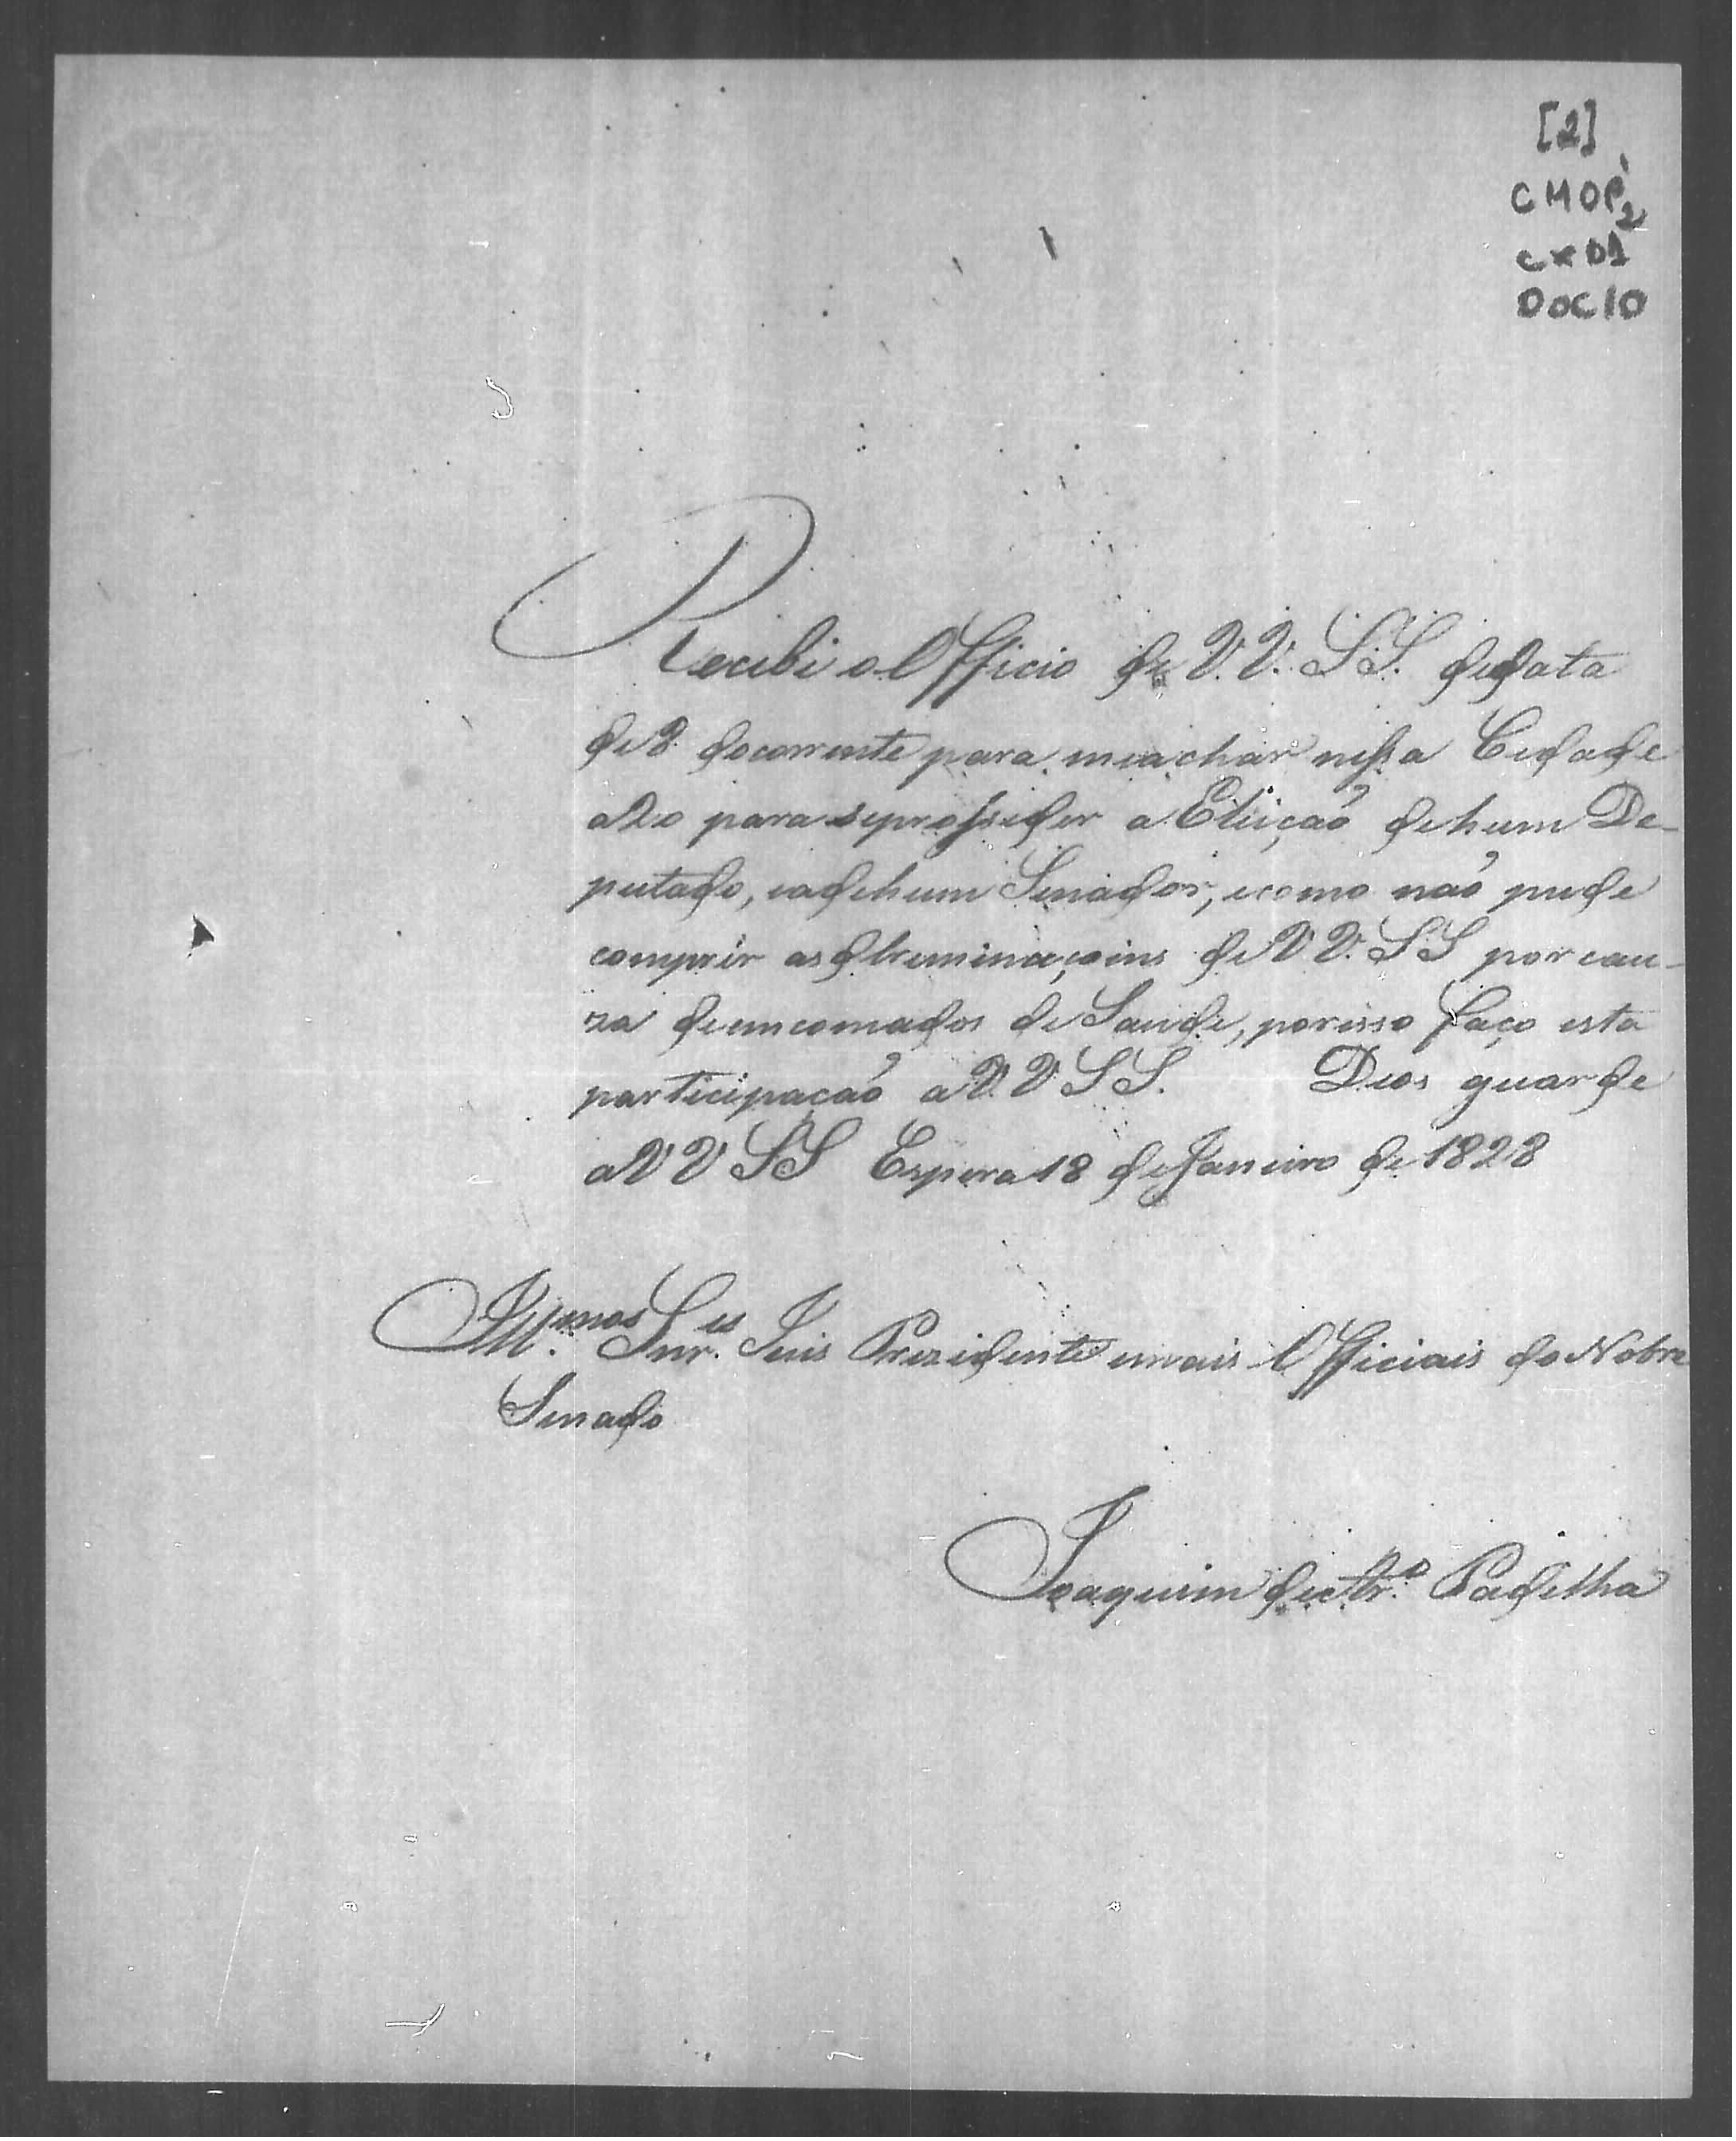 [2]
CMOP2
cx 01
DOC 10
Recibi o Officio de V. V. S.S. dedata
de 8 docorrente para meachar nessa Cedade
a 20 para seprosseder a Eleição dehum De-
putado, eadehum Senador, ecomo não pude
comprir as detreminaçoins de V V. S S por cau-
za deemcomados de Saude, porisso faço esta
participacão a V. V S S. Deos guarde
a V V S S Espera 18 de Janeiro de 1828
Ill.mos Snr.es Juis Prezidente emais Officiais do Nobre
Senado
Joaquim de Ar.o Padelha